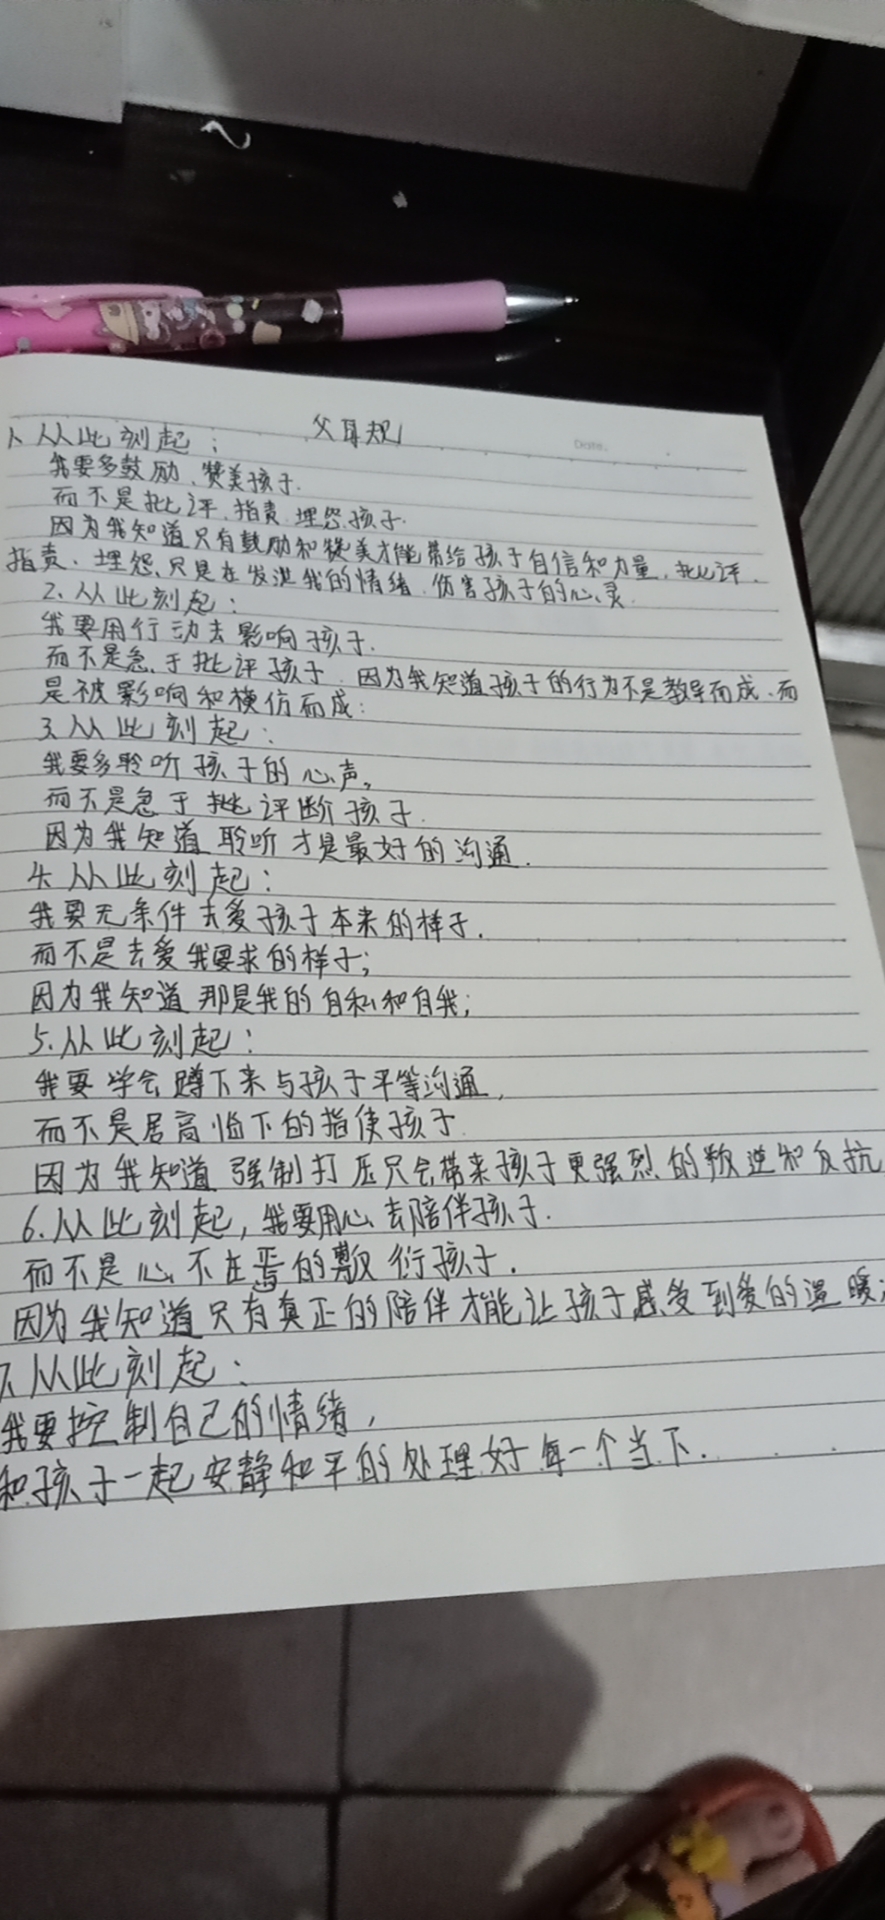 父母规
Date.
1、从此刻起：
我要多鼓励、赞美孩子.
而不是批评、指责、埋怨孩子.
因为我知道只有鼓励和赞美才能带给孩子自信和力量，批评、
指责、埋怨、只是在发泄我的情绪、伤害孩子的心灵.
2、从此刻起：
我要用行动去影响孩子.
而不是急于批评孩子.因为我知道孩子的行为不是教导而成、而
是被影响和模仿而成：
3、从此刻起：
我要多聆听孩子的心声。
而不是急于批评断孩子.
因为我知道聆听才是最好的沟通.
4、从此刻起：
我要无条件去爱孩子本来的样子.
而不是去爱我要求的样子；
因为我知道那是我的自私和自我；
5.从此刻起：
我要学会蹲下来与孩子平等沟通，
而不是居高临下的指使孩子
因为我知道强制打压只会带来孩子更强烈的叛逆和反抗
6.从此刻起，我要用心去陪伴孩子.
而不是心不在焉的敷衍孩子.
因为我知道只有真正的陪伴才能让孩子感受到爱的温暖；
7、从此刻起：
我要控制自己的情绪，
和孩子一起安静和平的处理好每一个当下.